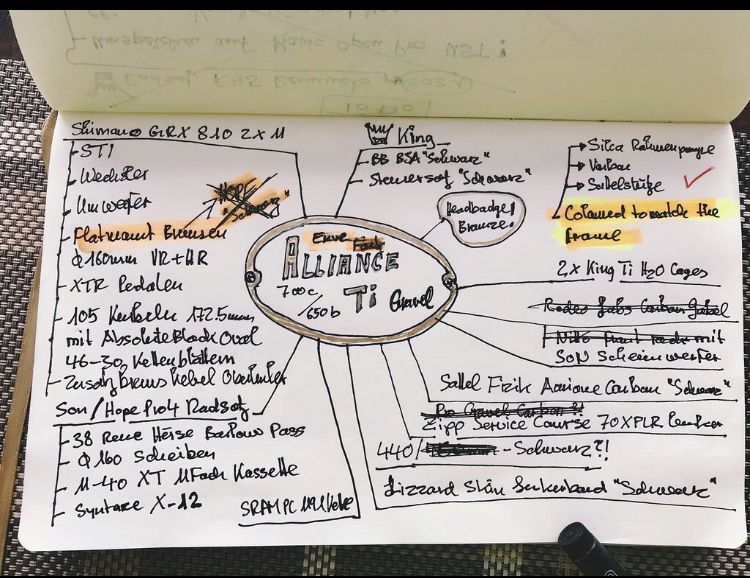 Shimano GRX 810 2x11
STI
Wechsler
Umwerfer
Flatmount Bremsen
Ø 160mm VR+HR
XTR Pedalen
105 Kurbeln 172.5mm
mit AbsoluteBlack Oval
46-30 Kettenblättern
Zusatzbremshebel Oberlenker
HOPE
"Schwarz"
King
BB BSA "Schwarz"
Steuersatz "Schwarz"
Headbadge!
Bronze!
Silca Rahmenpumpe
Vorbau
Sattelstütze
Coloured to match the
frame
Enve Fork
ALLIANCE
Ti Gravel
700c
/650b
2x King Ti H2O Cages
Rodeo Labs Carbon Gabel
Nitto front rack mit
SON Scheinwerfer
Sattel Fizik Arione Carbon "Schwarz"
Pro Gravel Carbon?!
Zipp Service Course 70XPLR Lenker
440/ - Schwarz?!
Lizzard Skin Lenkerband "Schwarz"
Son/Hope Pro4 Radsatz
38 Rene Herse Barlow Pass
Ø 160 Scheiben
11-40 XT 11Fach Kassette
Syntace X-12
SRAM PC